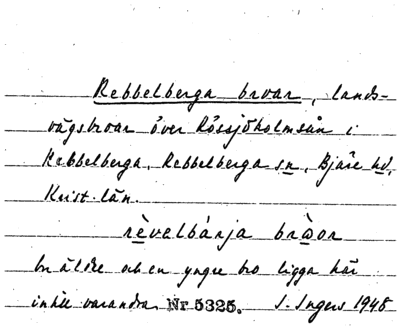 Rebbelberga broar, lands-
vägsbroar över Rössjöholmsån i
Rebbelberga, Rebbelberga sn, Bjäre hd,
Krist. län.
rèvelbárja bràor
En äldre och en yngre bro ligga här
intill varandra. Nr 5325. I. Ingers 1948